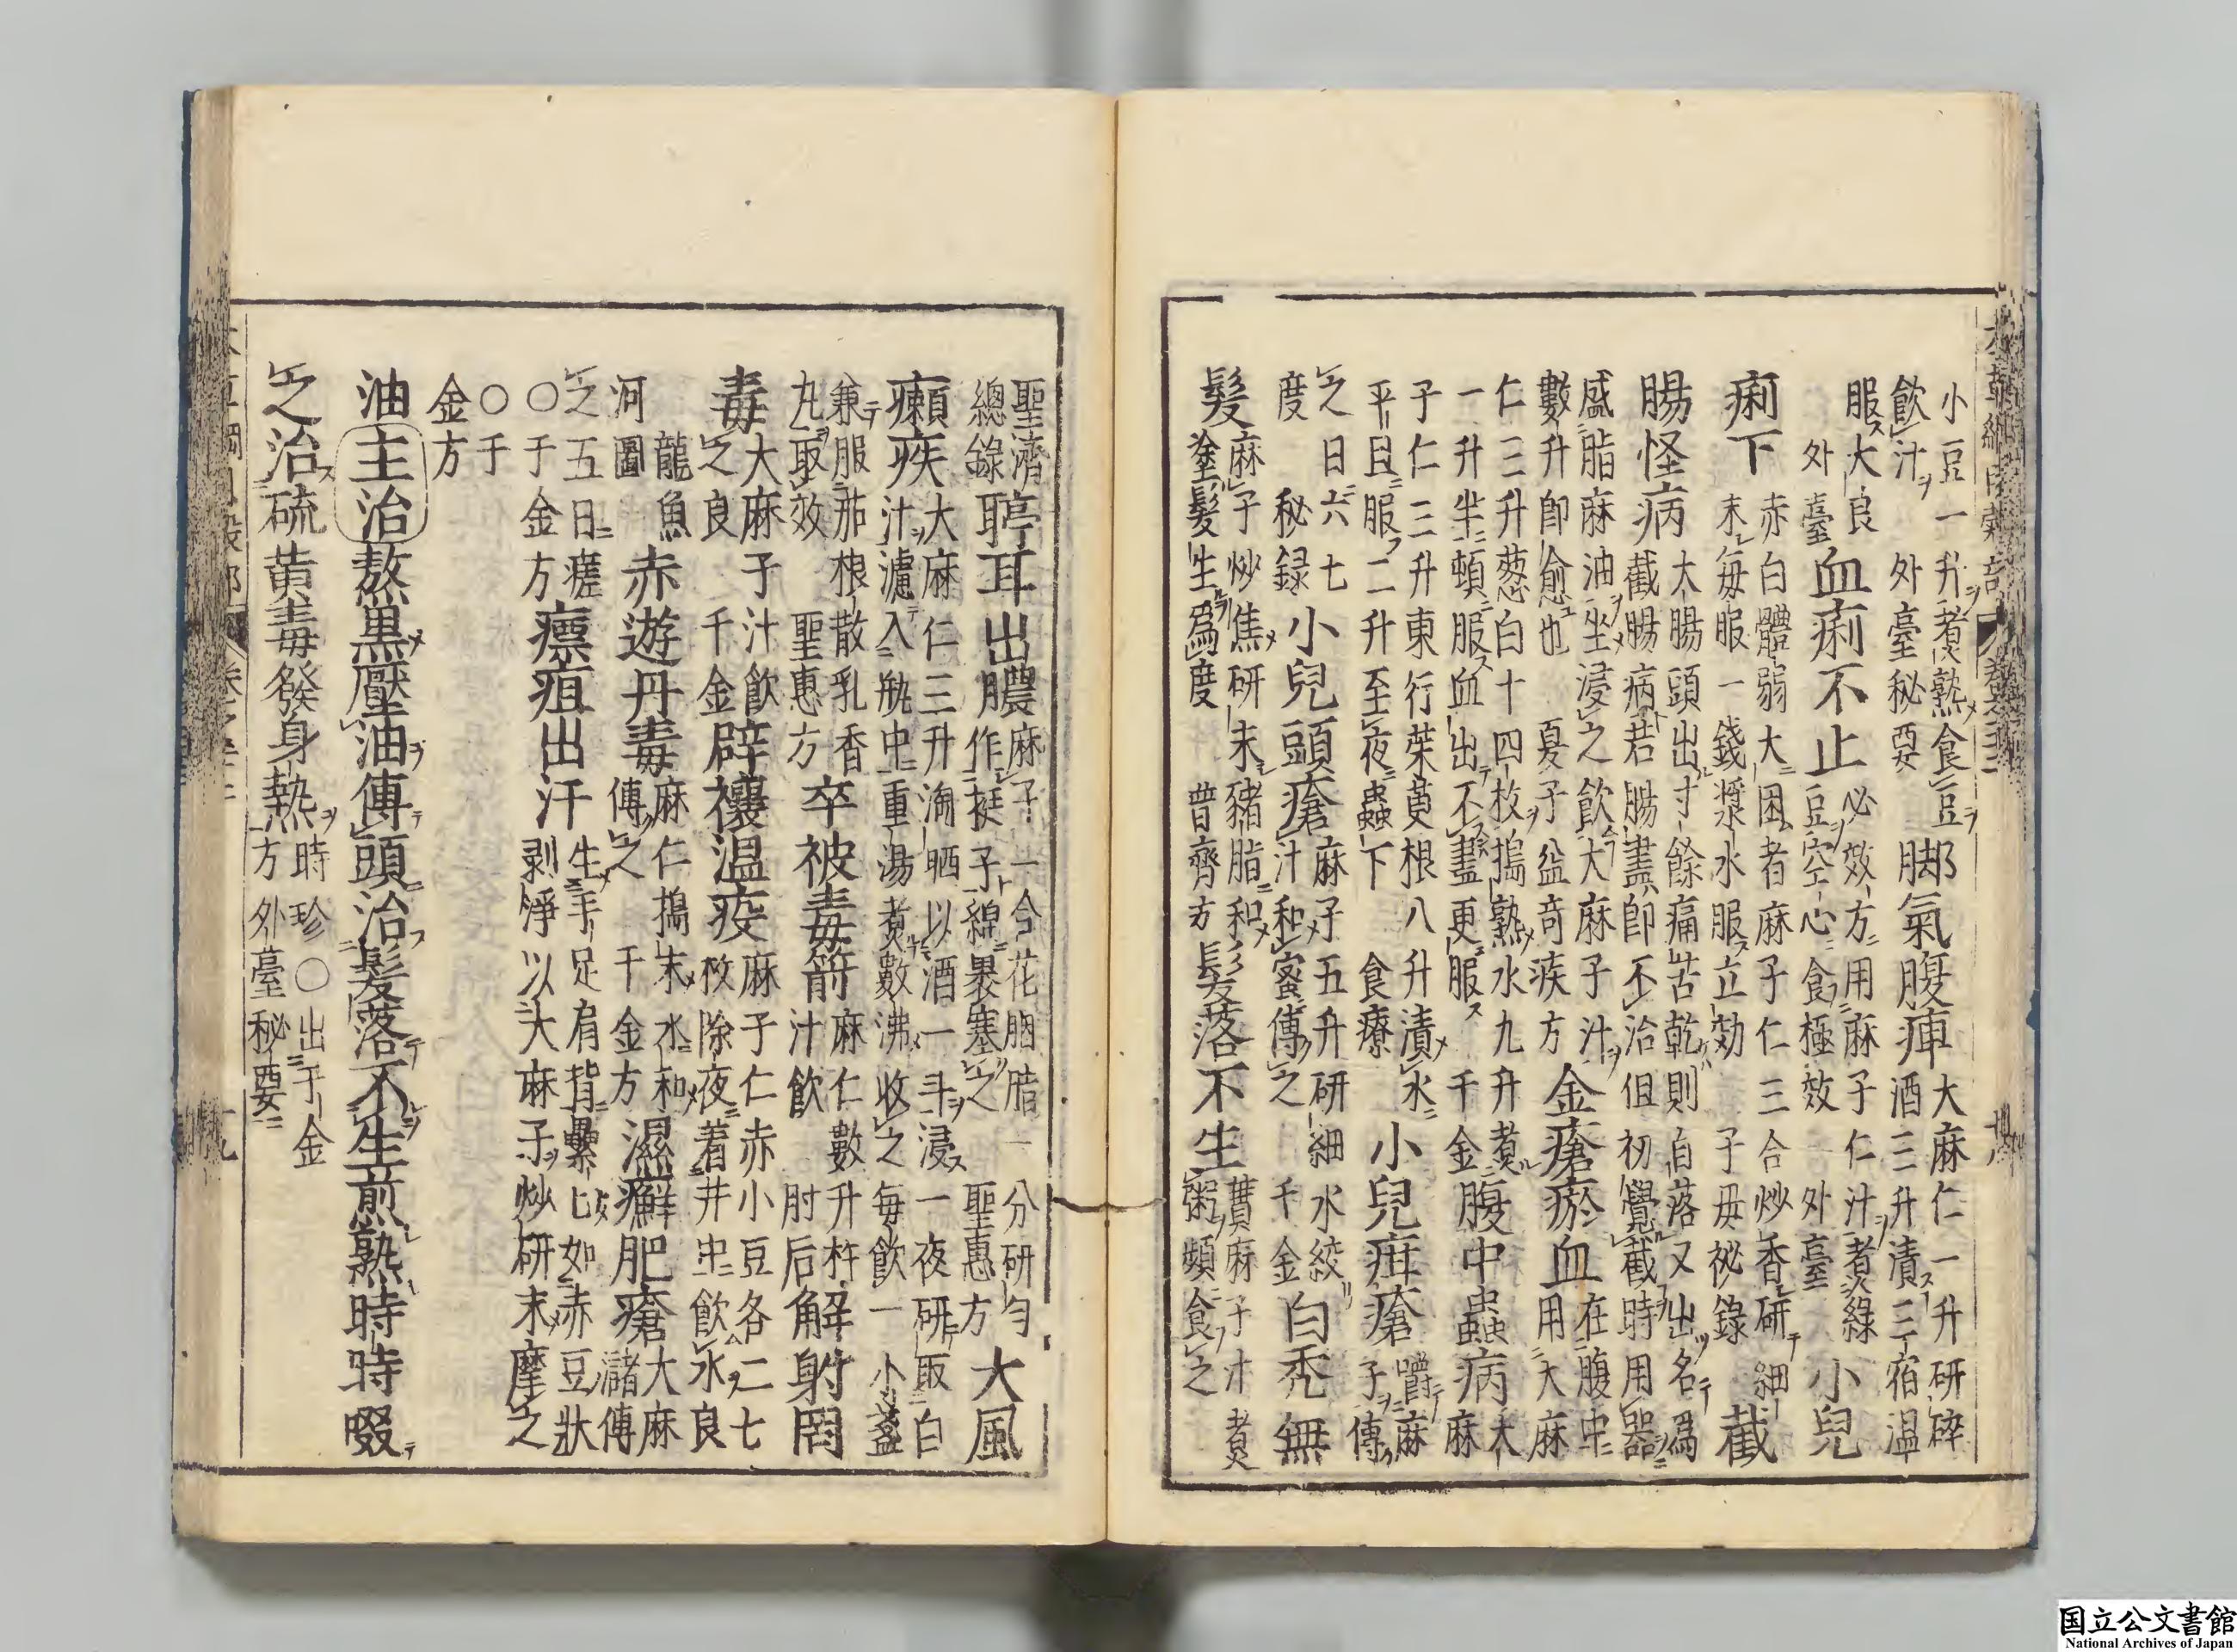 小豆一升煮熟食豆飲汁 外臺秘要 脚氣腹痺 大麻仁一升研碎酒三升漬三宿温
服大良 外臺 血痢不止 必效方用麻子仁汁煮綠豆空心食極效 外臺 小兒
痢下 赤白體弱大困者麻子仁三合炒香研細末每服一錢漿水服立効 子母祕錄 截
腸怪病 大腸頭出寸餘痛苦乾則自落又出名爲截腸病若腸盡即不治但初覺截時用器
盛脂麻油坐浸之飲大麻子汁數升即愈也 夏子益奇疾方 金瘡瘀血 在腹中用大麻
仁三升葱白十四枚搗熟水九升煮一升半頓服血出不盡更服 千金 腹中蟲病 大麻
子仁三升東行茱萸根八升漬水平旦服二升至夜蟲下 食療 小兒疳瘡 嚼麻子傅
之日六七度 秘録 小兒頭瘡 麻子五升研細水絞汁和蜜傅之 千金 白禿無
髮 麻子炒焦研末豬脂和塗髮生爲度 普齊方 髮落不生 蕡麻子汁煮粥頻食之
聖濟總錄 聤耳出膿 麻子一合花胭脂一分研匀作挺子綿裹塞之 聖惠方 大風
癩疾 大麻仁三升淘晒以酒一斗浸一夜研取白汁濾入瓶中重湯煮數沸收之每飲一小盞
兼服茄根散乳香丸取效 聖惠方 卒被毒箭 麻仁數升杵汁飲 肘后 解射罔
毒 大麻子汁飲之良 千金 辟禳温疫 麻子仁赤小豆各二七枚除夜着井中飲水良
龍魚河圖 赤遊丹毒 麻仁搗末水和傅之 千金方 濕癬肥瘡 大麻濇傅
之五日瘥○于金方 瘭疽出汗 生手足肩背纍纍如赤豆狀剥淨以大麻子炒研末摩之
○于金方
油主治熬黒壓油傅頭治髮落不生煎熟時時啜
之治硫黄毒發身熱 時珍○出于金方外臺秘要
国立公文書館
National Archives of Japan